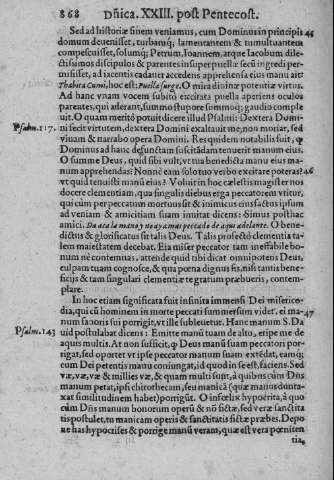 868 Dñica. XXIII. post Pentecost.
Sed ad historiæ finem veniamus, cum Dominus in principis 45
domum devenisset, turbamq; lamentantem & tumultuantem
compescuisset, solumq; Petrum, Ioannem, atque Iacobum dile-
ctissimos discipulos & parentes in super puellæ secũ ingredi per-
misisset, ad iacentis cadaver accedens apprehensa eius manu ait:
Thabita Cumi, hoc est: Puella surge. O mira divinæ potentiæ virtus.
Ad hanc vnam vocem subitò excitata puella aperiens oculos
parentes, qui aderant, summo stupore simmodq; gaudio comple
uit. O quam meritò potuit dicere illud Psalmi: Dextera Domi-
Psalm. 117. ni fecit virtutem, dextera Domini exaltauit me, non moriar, sed
viuam & narrabo opera Domini. Res quidem notabilis fuit, ꝙ
Dominus ad hanc defunctam suscitãdam tenuerit manum eius.
O summe Deus, quid sibi vult, vt tua benedicta manu eius ma-
num apprehendas: Nonnè eam solo tuo verbo excitare poteras? 46
vt quid tenuisti manũ eius? Voluit in hoc cælestis magister nos
docere clementiam, qua singulis diebus erga peccatorem vtitur,
qui cùm per peccatum mortuus sit & inimicus eius factus ipsum
ad veniam & amicitiam suam inuitat dicens: Simus posthac
amici. Da aca la mano y no ay amas peccado de aqui adelante. O bene-
dictus & glorificatus sit talis Deus. Talis profectò clementia ta-
lem maiestatem decebat. Eia miser peccator tam ineffabile bo-
num nè contemnas, attende quid tibi dicat omnipotens Deus,
culpam tuam cognosce, & qua pœna dignus sis, nisi tantis bene-
ficijs & tam singulari clementiæ te gratum præbueris, contem-
plare.
In hoc etiam significata fuit infinita immensi Dei misericor-
dia, qui cũ hominem in morte peccati summersum videt, ei ma- 47
num sauoris sui porrigit, vt ille subleuetur. Hanc manum S. Da
Psalm. 143 uid postulabat dicens: Emitte manũ tuam de alto, eripe me de
aquis multis. At non sufficit, ꝙ Deus manũ suam peccatori por-
rigat, sed oportet vt ipse peccator manum suam extẽdat, eamq;
cum Dei petentis manu coniungat, id quod in se est, faciens. Sed
væ, væ, væ & millies væ, & quam multi sunt, à quibus cũm Dñs
manum petat, ipsi chirothecam, seu manicã (quæ manus dunta-
xat similitudinem habet) porrigũt. O infœlix hypocrita, à quo
cùm Dñs manum bonorum operũ & nõ fictæ, sed veræ sanctita
tis postulet, tu manicam operis & sanctitatis fictæ præbes. Depo
ne has hypocrises & porrige manũ veram, quæ est vera pœniten
tia,